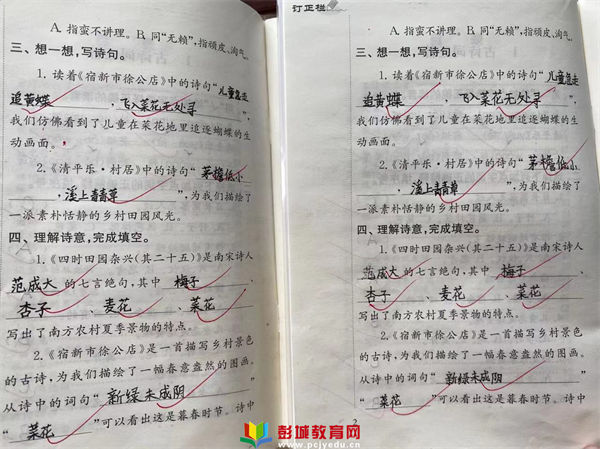 A. 指蛮不讲理。B. 同“无赖”,指顽皮、淘气。
三、想一想,写诗句。
1. 读着《宿新市徐公店》中的诗句“儿童急走
追黄蝶,飞入菜花无处寻”,
我们仿佛看到了儿童在菜花地里追逐蝴蝶的生
动画面。
2.《清平乐·村居》中的诗句“茅檐低小
,溪上青青草”,为我们描绘了
一派素朴恬静的乡村田园风光。
四、理解诗意,完成填空。
1.《四时田园杂兴(其二十五)》是南宋诗人
范成大的七言绝句,其中梅子、
杏子、麦花、菜花
写出了南方农村夏季景物的特点。
2.《宿新市徐公店》是一首描写乡村景色
的古诗,为我们描绘了一幅春意盎然的图画。
从诗中的词句“新绿未成阴”
“菜花”可以看出这是暮春时节。诗中
订正栏
A. 指蛮不讲理。B. 同“无赖”,指顽皮、淘气。
三、想一想,写诗句。
1. 读着《宿新市徐公店》中的诗句“儿童急走
追黄蝶,飞入菜花无处寻”,
我们仿佛看到了儿童在菜花地里追逐蝴蝶的生
动画面。
2.《清平乐·村居》中的诗句“茅檐低小
,溪上青青草”,为我们描绘了
一派素朴恬静的乡村田园风光。
四、理解诗意,完成填空。
1.《四时田园杂兴(其二十五)》是南宋诗人
范成大的七言绝句,其中梅子、
杏子、麦花、菜花
写出了南方农村夏季景物的特点。
2.《宿新市徐公店》是一首描写乡村景色
的古诗,为我们描绘了一幅春意盎然的图画。
从诗中的词句“新绿未成阴”
“菜花”可以看出这是暮春时节。诗中
2
彭城教育网
www.pcjyedu.cn